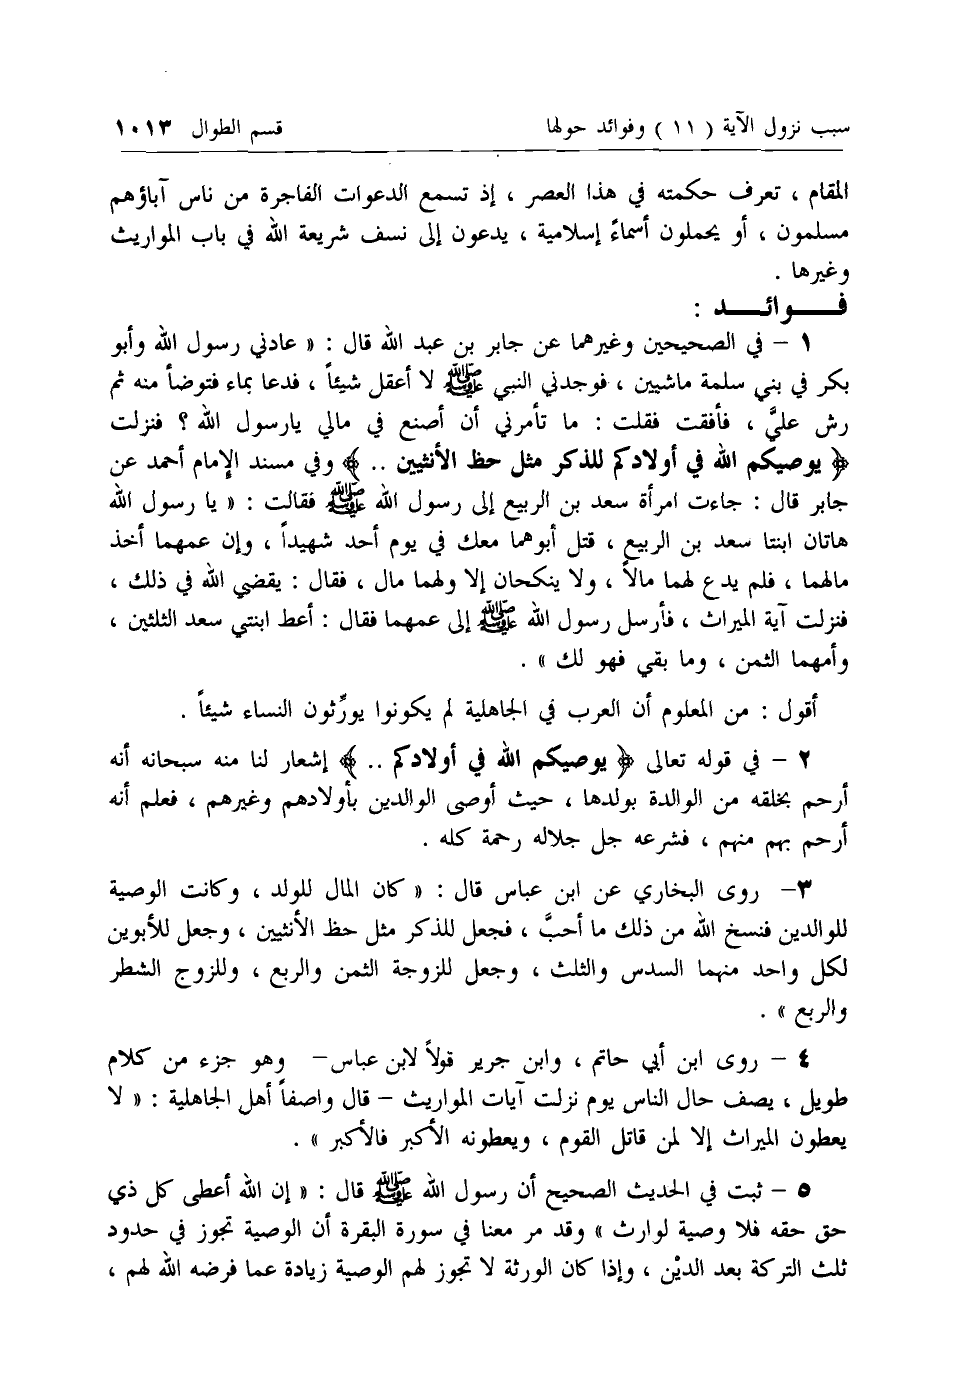 سبب نزول الآية ( ١١ ) وفوائد حولها قسم الطوال ١٠١٣
المقام ، تعرف حكمته في هذا العصر ، إذ تسمع الدعوات الفاجرة من ناس آباؤهم
مسلمون ، أو يحملون أسماءً إسلامية ، يدعون إلى نسف شريعة الله في باب المواريث
وغيرها .
فـــوائـــد :
١ – في الصحيحين وغيرهما عن جابر بن عبد الله قال : « عادني رسول الله وأبو
بكر في بني سلمة ماشيين ، فوجدني النبي ﷺ لا أعقل شيئاً ، فدعا بماء فتوضأ منه ثم
رش عليَّ ، فأفقت فقلت : ما تأمرني أن أصنع في مالي يارسول الله ؟ فنزلت
﴿ يوصيكم الله في أولادكم للذكر مثل حظ الأنثيين .. ﴾ وفي مسند الإمام أحمد عن
جابر قال : جاءت امرأة سعد بن الربيع إلى رسول الله ﷺ فقالت : « يا رسول الله
هاتان ابنتا سعد بن الربيع ، قتل أبوهما معك في يوم أحد شهيداً ، وإن عمهما أخذ
مالهما ، فلم يدع لهما مالاً ، ولا ينكحان إلا ولهما مال ، فقال : يقضي الله في ذلك ،
فنزلت آية الميراث ، فأرسل رسول الله ﷺ إلى عمهما فقال : أعط ابنتي سعد الثلثين ،
وأمهما الثمن ، وما بقي فهو لك » .
أقول : من المعلوم أن العرب في الجاهلية لم يكونوا يورِّثون النساء شيئاً .
٢ – في قوله تعالى ﴿ يوصيكم الله في أولادكم .. ﴾ إشعار لنا منه سبحانه أنه
أرحم بخلقه من الوالدة بولدها ، حيث أوصى الوالدين بأولادهم وغيرهم ، فعلم أنه
أرحم بهم منهم ، فشرعه جل جلاله رحمة كله .
٣– روى البخاري عن ابن عباس قال : « كان المال للولد ، وكانت الوصية
للوالدين فنسخ الله من ذلك ما أحبَّ ، فجعل للذكر مثل حظ الأنثيين ، وجعل للأبوين
لكل واحد منهما السدس والثلث ، وجعل للزوجة الثمن والربع ، وللزوج الشطر
والربع » .
٤ – روى ابن أبي حاتم ، وابن جرير قولاً لابن عباس– وهو جزء من كلام
طويل ، يصف حال الناس يوم نزلت آيات المواريث – قال واصفاً أهل الجاهلية : « لا
يعطون الميراث إلا لمن قاتل القوم ، ويعطونه الأكبر فالأكبر » .
٥ – ثبت في الحديث الصحيح أن رسول الله ﷺ قال : « إن الله أعطى كل ذي
حق حقه فلا وصية لوارث » وقد مر معنا في سورة البقرة أن الوصية تجوز في حدود
ثلث التركة بعد الديْن ، وإذا كان الورثة لا تجوز لهم الوصية زيادة عما فرضه الله لهم ،